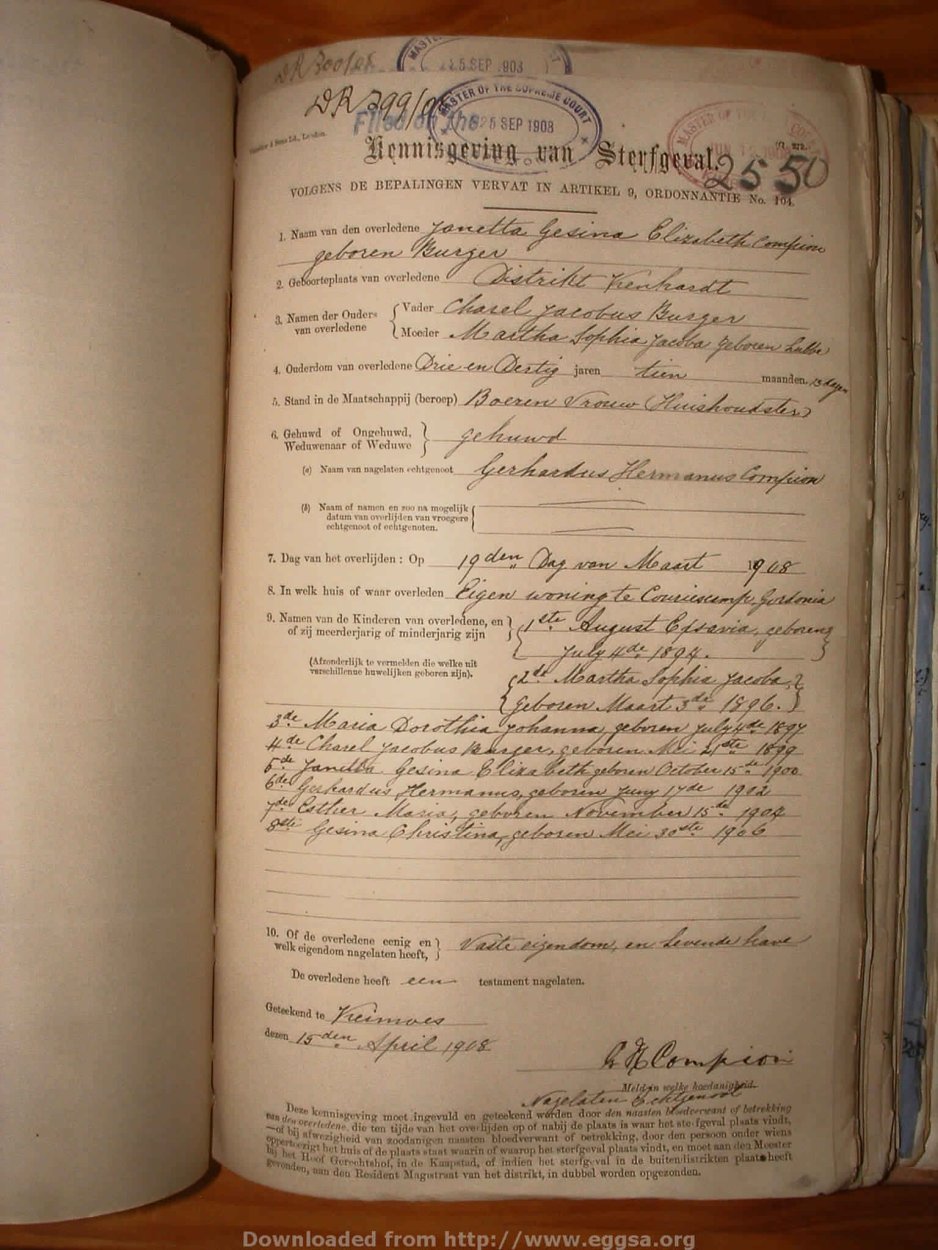 DR 300/08
MAST
25 SEP 1903
DR 299/08
MASTER OF THE SUPREME COURT
Filed on the 25 SEP 1908
& Sons Ld., London.
MASTER OF THE
Kennisgeving van Sterfgeval. 2550
VOLGENS DE BEPALINGEN VERVAT IN ARTIKEL 9, ORDONNANTIE No. 104.
1. Naam van den overledene Janetta Gesina Elizabeth Compion
geboren Burger
2. Geboorteplaats van overledene Distrikt Kenhardt
3. Namen der Ouders van overledene { Vader Charel Jacobus Burger
Moeder Martha Sophia Jacoba geboren Lubbe
4. Ouderdom van overledene Drie en Dertig jaren tien maanden 13 dagen
5. Stand in de Maatschappij (beroep) Boeren Vrouw (Huishoudster)
6. Gehuwd of Ongehuwd, Weduwenaar of Weduwe } gehuwd
(a) Naam van nagelaten echtgenoot Gerhardus Hermanus Compion
(b) Naam of namen en zoo na mogelijk
datum van overlijden van vroegere
echtgenoot of echtgenoten.
7. Dag van het overlijden : Op 19den Dag van Maart 1908
8. In welk huis of waar overleden Eigen woning te Gordonia
9. Namen van de Kinderen van overledene, en of zij meerderjarig of minderjarig zijn
1ste August geboren
July 4de 1894.
(Afzonderlijk te vermelden die welke uit verschillenue huwelijken geboren zijn).
2de Martha Sophia Jacoba,
geboren Maart 3de 1896.
3de Maria Dorothia Johanna, geboren July 4de 1897
4de Charel Jacobus Burger, geboren Mei 21ste 1899
5de Janetta Gesina Elizabeth geboren October 15de 1900
6de Gerhardus Hermanus, geboren Juny 17de 1902
7de Esther Maria, geboren November 15de 1904
8ste Gesina Christina, geboren Mei 30ste 1906
10. Of de overledene eenig en welk eigendom nagelaten heeft, } Vaste eigendom, en Levende have
De overledene heeft een testament nagelaten.
Geteekend te Keimoes
dezen 15den April 1908
G H Compion
Meld in welke hoedanigheid.
Nagelaten Echtgenoot
Deze kennisgeving moet ingevuld en geteekend worden door den naasten bloedverwant of betrekking
van den overledene, die ten tijde van het overlijden op of nabij de plaats is waar het sterfgeval plaats vindt,
—of bij afwezigheid van zoodanigen naasten bloedverwant of betrekking, door den persoon onder wiens
oppertoezigt het huis of de plaats staat waarin of waarop het sterfgeval plaats vindt, en moet aan den Meester
bij het Hoof Gerechtshof, in de Kaapstad, of indien het sterfgeval in de buitendistrikten plaats heeft
gevonden, aan den Resident Magistraat van het distrikt, in dubbel worden opgezonden.
Downloaded from http://www.eggsa.org